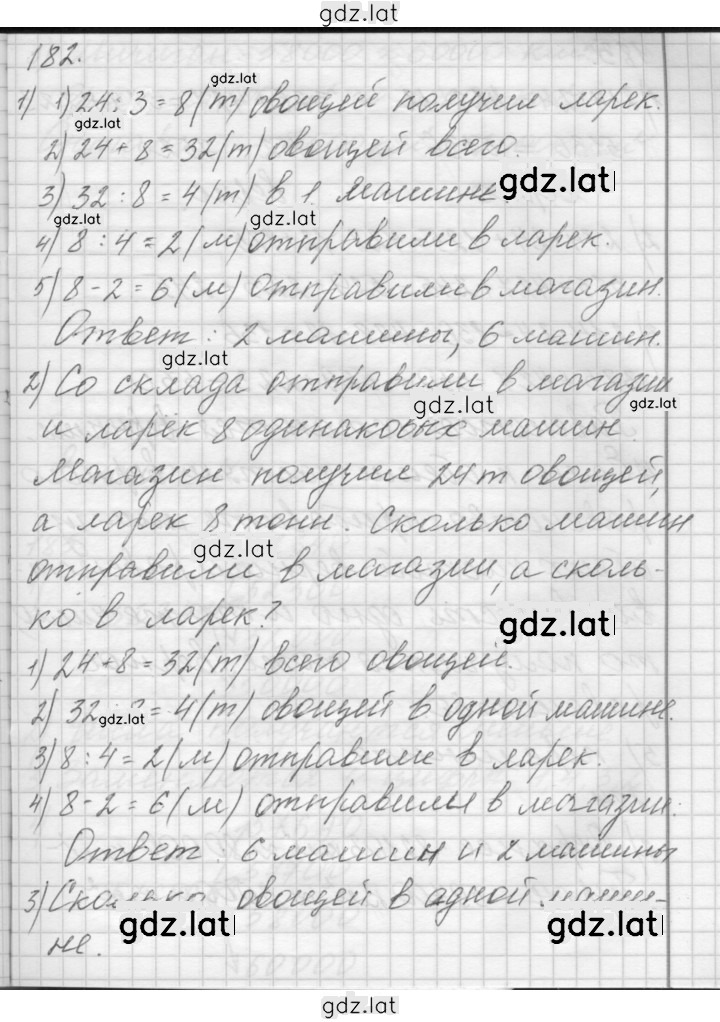 gdz.lat
182.
gdz.lat
1) 1) 24 : 3 = 8 (т) овощей получил ларек.
gdz.lat
2) 24 + 8 = 32 (т) овощей всего.
3) 32 : 8 = 4 (т) в 1 машине
gdz.lat
gdz.lat
gdz.lat
4) 8 : 4 = 2 (м) отправили в ларек.
5) 8 - 2 = 6 (м) отправили в магазин.
Ответ: 2 машины, 6 машин.
gdz.lat
2) Со склада отправили в магазин
gdz.lat
gdz.lat
и ларек 8 одинаковых машин.
Магазин получил 24 т овощей,
а ларек 8 тонн. Сколько машин
gdz.lat
отправили в магазин, а сколь-
ко в ларек?
gdz.lat
1) 24 + 8 = 32 (т) всего овощей.
2) 32 : = 4 (т) овощей в одной машине.
gdz.lat
3) 8 : 4 = 2 (м) отправили в ларек.
4) 8 - 2 = 6 (м) отправили в магазин.
Ответ: 6 машин и 2 машины
3) овощей в одной
gdz.lat
gdz.lat
не.
gdz.lat